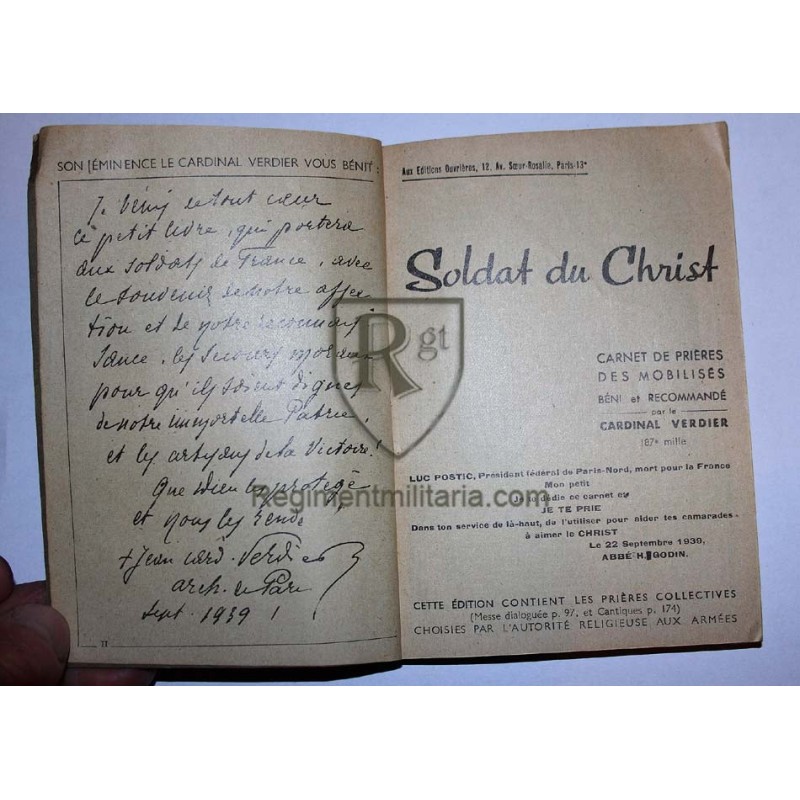 SON ÉMINENCE LE CARDINAL VERDIER VOUS BÉNIT :
Je bénis de tout cœur
ce petit livre, qui portera
aux soldats de France, avec
le souvenir de notre affec-
tion et de notre reconnais
sance, les secours moraux
pour qu'ils soient dignes
de notre immortelle Patrie,
et les artisans de la Victoire !
Que Dieu les protège
et nous les rende
+ Jean card. Verdier
arch. de Paris
Sept. 1939 !
II
Aux Editions Ouvrières, 12, Av. Sœur-Rosalie, Paris-13e
Soldat du Christ
CARNET DE PRIÈRES
DES MOBILISÉS
BÉNI et RECOMMANDÉ
par le
CARDINAL VERDIER
187e mille
LUC POSTIC, Président fédéral de Paris-Nord, mort pour la France
Mon petit
Je te dédie ce carnet et
JE TE PRIE
Dans ton service de là-haut, de l'utiliser pour aider tes camarades
à aimer le CHRIST
Le 22 Septembre 1939,
ABBÉ H. GODIN.
CETTE ÉDITION CONTIENT LES PRIÈRES COLLECTIVES
(Messe dialoguée p. 97, et Cantiques p. 174)
CHOISIES PAR L'AUTORITÉ RELIGIEUSE AUX ARMÉES
Rgt
Regimentmilitaria.com